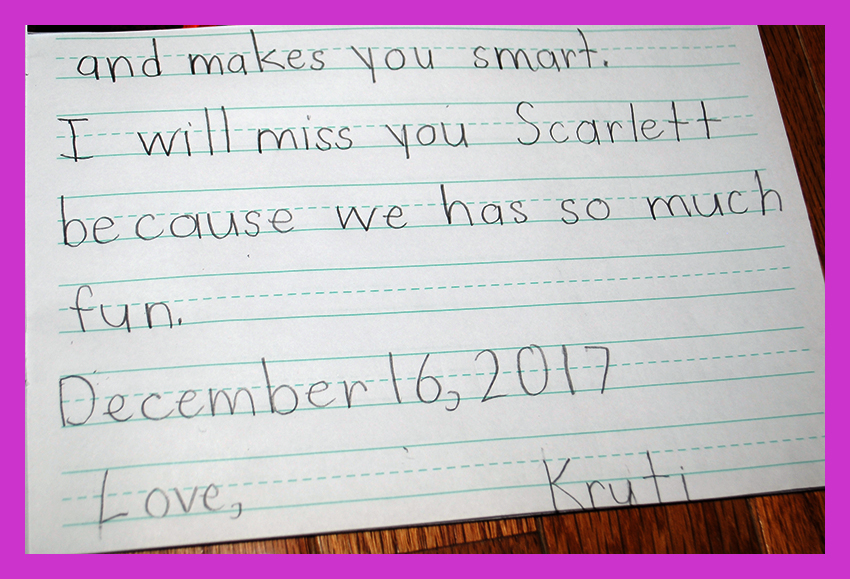 and makes you smart.
I will miss you Scarlett
because we has so much
fun.
December 16, 2017
Love, Kruti